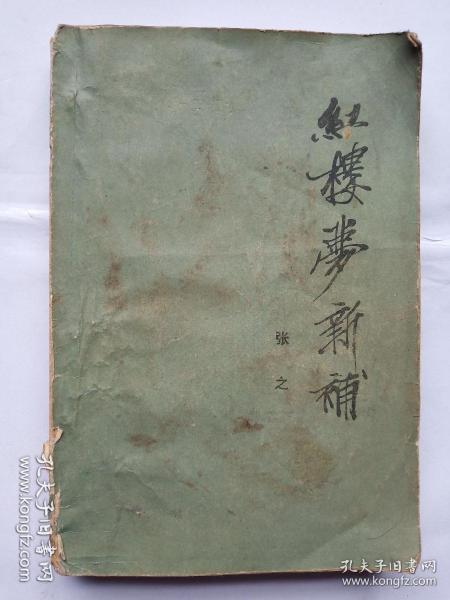 紅樓夢新補
张之
孔夫子旧书网
www.kongfz.com
孔夫子旧书网
www.kongfz.com